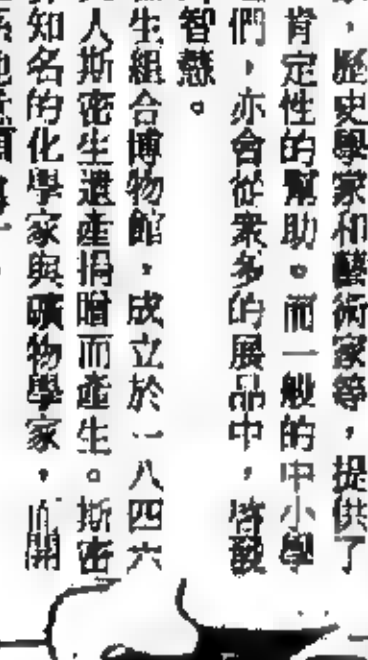 ，歷史學家和藝術家等，提供了
肯定性的幫助。而一般的中小學
們，亦會從衆多的展品中，啓發
智慧。
生組合博物館，成立於一八四六
人斯密生遺產捐贈而產生。斯密
知名的化學家與礦物學家，而開